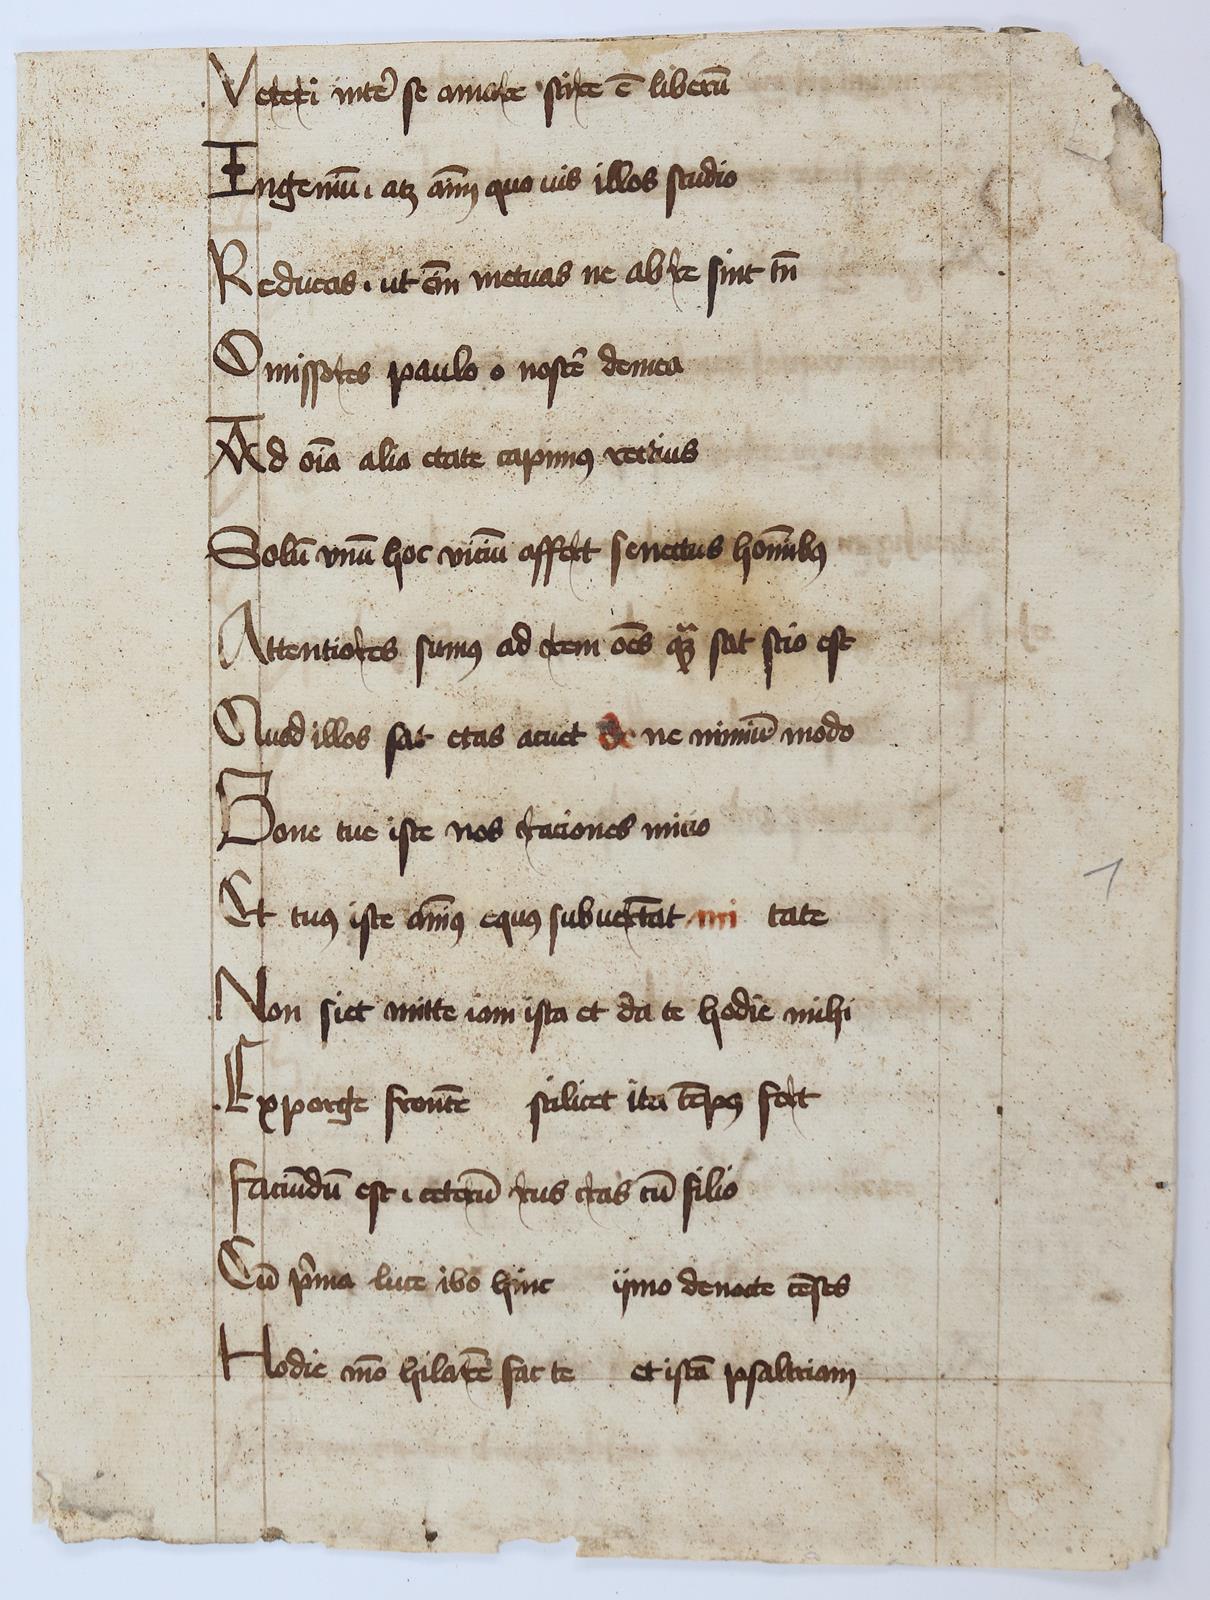 Vereri inter̄ se amare scire ē liberū
Ingeniū. atꝫ aīm̄ quo uis illos studio
Reducas. ut em̄ metuas ne ab re sint tn̄
Omissores paulo o noster̄ demea
Ad oīa alia etate sapimꝰ rectius
Solū vnū hoc viciū affert senectus hoīnibꝰ
Attentiores sumꝰ ad rem oēs qᷓꝫ sat scio est
Quod illos sat etas acuet de ne nimiū modo
Bone tue iste nos raciones micio
Et tuꝰ iste aīmꝰ equꝰ subuertat mi tate
Non fiet mitte iam ista et da te hodie mihi
Exporge frontē scilicet ita tēpꝰ fert
Faciūdū est. ceterū rus cras cū filio
Cū pͥma luce ibo hinc ijmo denocte cēses
Hodie mō hilarē fac te et istā psaltriam
1